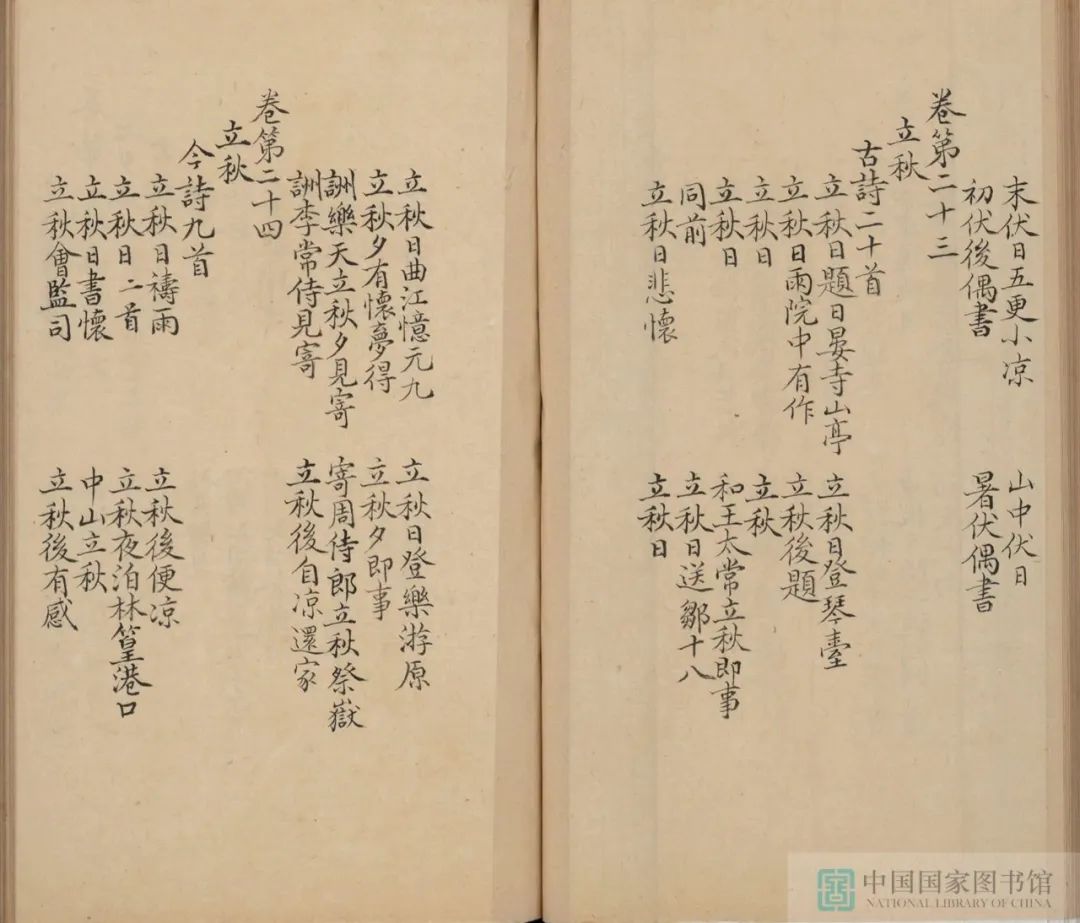 末伏日五更小凉 山中伏日
初伏後偶書 暑伏偶書
卷第二十三
立秋
古詩二十首
立秋日題日晏寺山亭 立秋日登琴臺
立秋日雨院中有作 立秋後題
立秋日 立秋
立秋日 和王太常立秋即事
同前 立秋日送鄒十八
立秋日悲懷 立秋日
立秋日曲江憶元九 立秋日登樂游原
立秋夕有懷夢得 立秋夕即事
詶樂天立秋夕見寄 寄周侍郎立秋祭嶽
詶李常侍見寄 立秋後自凉還家
卷第二十四
立秋
今詩九首
立秋日禱雨 立秋後便凉
立秋日二首 立秋夜泊林篁港口
立秋日書懷 中山立秋
立秋會監司 立秋後有感
中国国家图书馆
NATIONAL LIBRARY OF CHINA